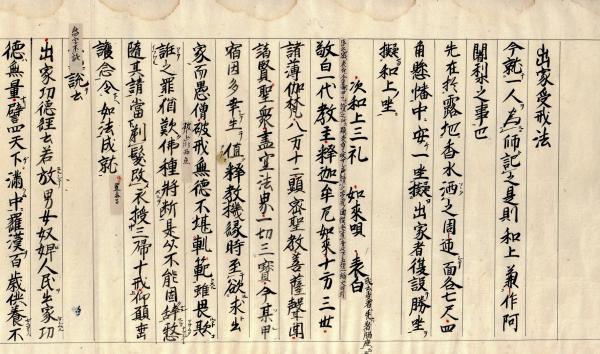 出家受戒法
今就一人為師記之是則和上兼作阿
闍梨之事也
先在於露地香水洒之周迊面各七尺四
角懸幡中安一坐擬出家者復設勝坐
擬和上坐
次和上三礼 如来唄 表白
敬白一代教主釋迦牟尼如来十方三世
諸薄伽梵八万十二顕密聖教菩薩聲聞
諸賢聖衆盡空法界一切三寳今某甲
宿因多幸生値釋教機縁時至欲求出
家而愚僧破戒無德不堪軌範雖畏欺
誑之罪偏歎佛種将断是以不能固辞愍
随其請當剃髮改衣授三歸十戒仰願垂
護念令如法成就
說云
出家功德経云若放男女奴婢人民出家功
德無量譬四天下滿中羅漢百歳供養不